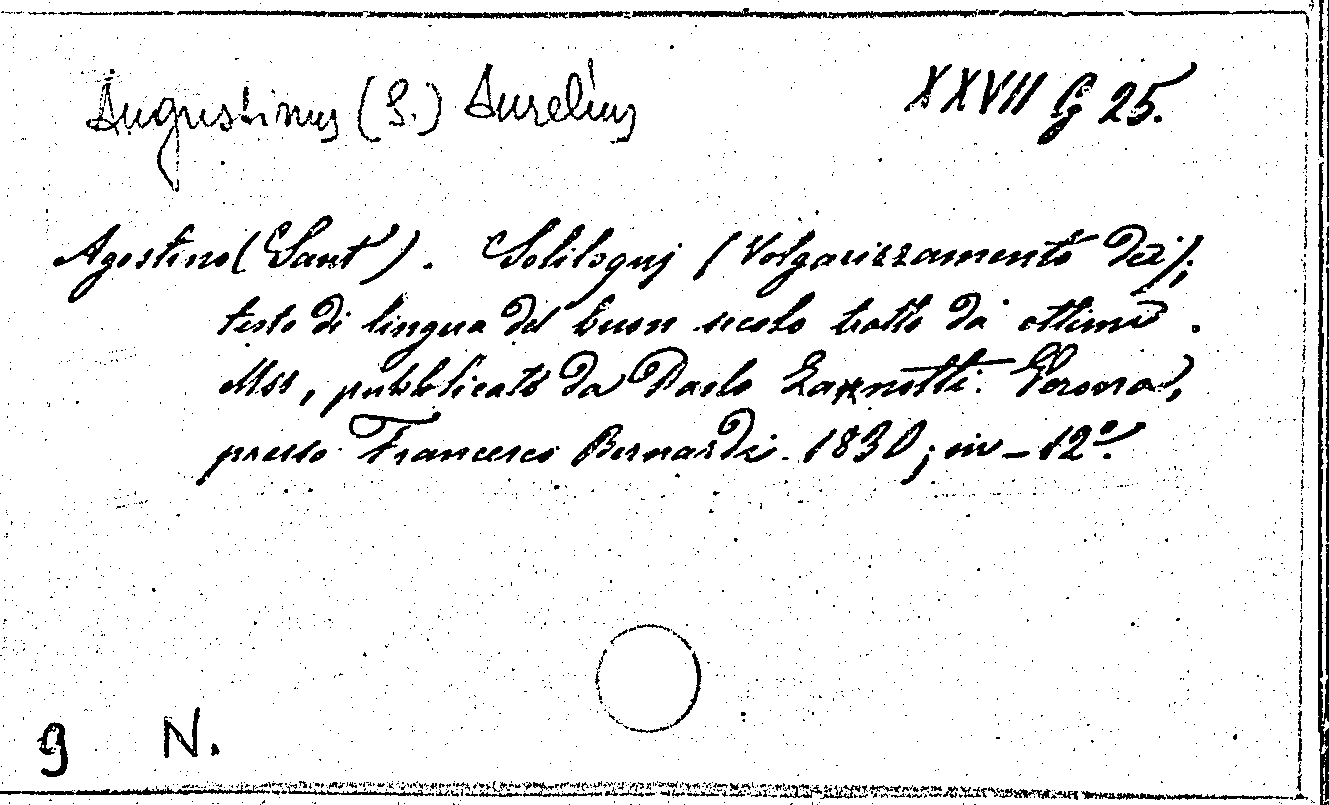 Augustinus (S.) Aurelius XXVII G 25.
Agostino (Sant'). Soliloquj (Volgarizzamento dei);
testo di lingua del buon secolo tratto da ottimi
Mss, pubblicato da Paolo Zannotti. Verona,
presso Francesco Bernardi. 1830; in-12º.
9 N.